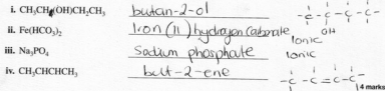 i. CH₃CH(OH)CH₂CH₃ butan-2-ol -C-C-C-C-
OH
ii. Fe(HCO₃)₂ Iron (II) hydrogen Carbonate ionic
iii. Na₃PO₄ Sodium phosphate ionic
iv. CH₃CHCHCH₃ but-2-ene -C-C=C-C-
4 marks